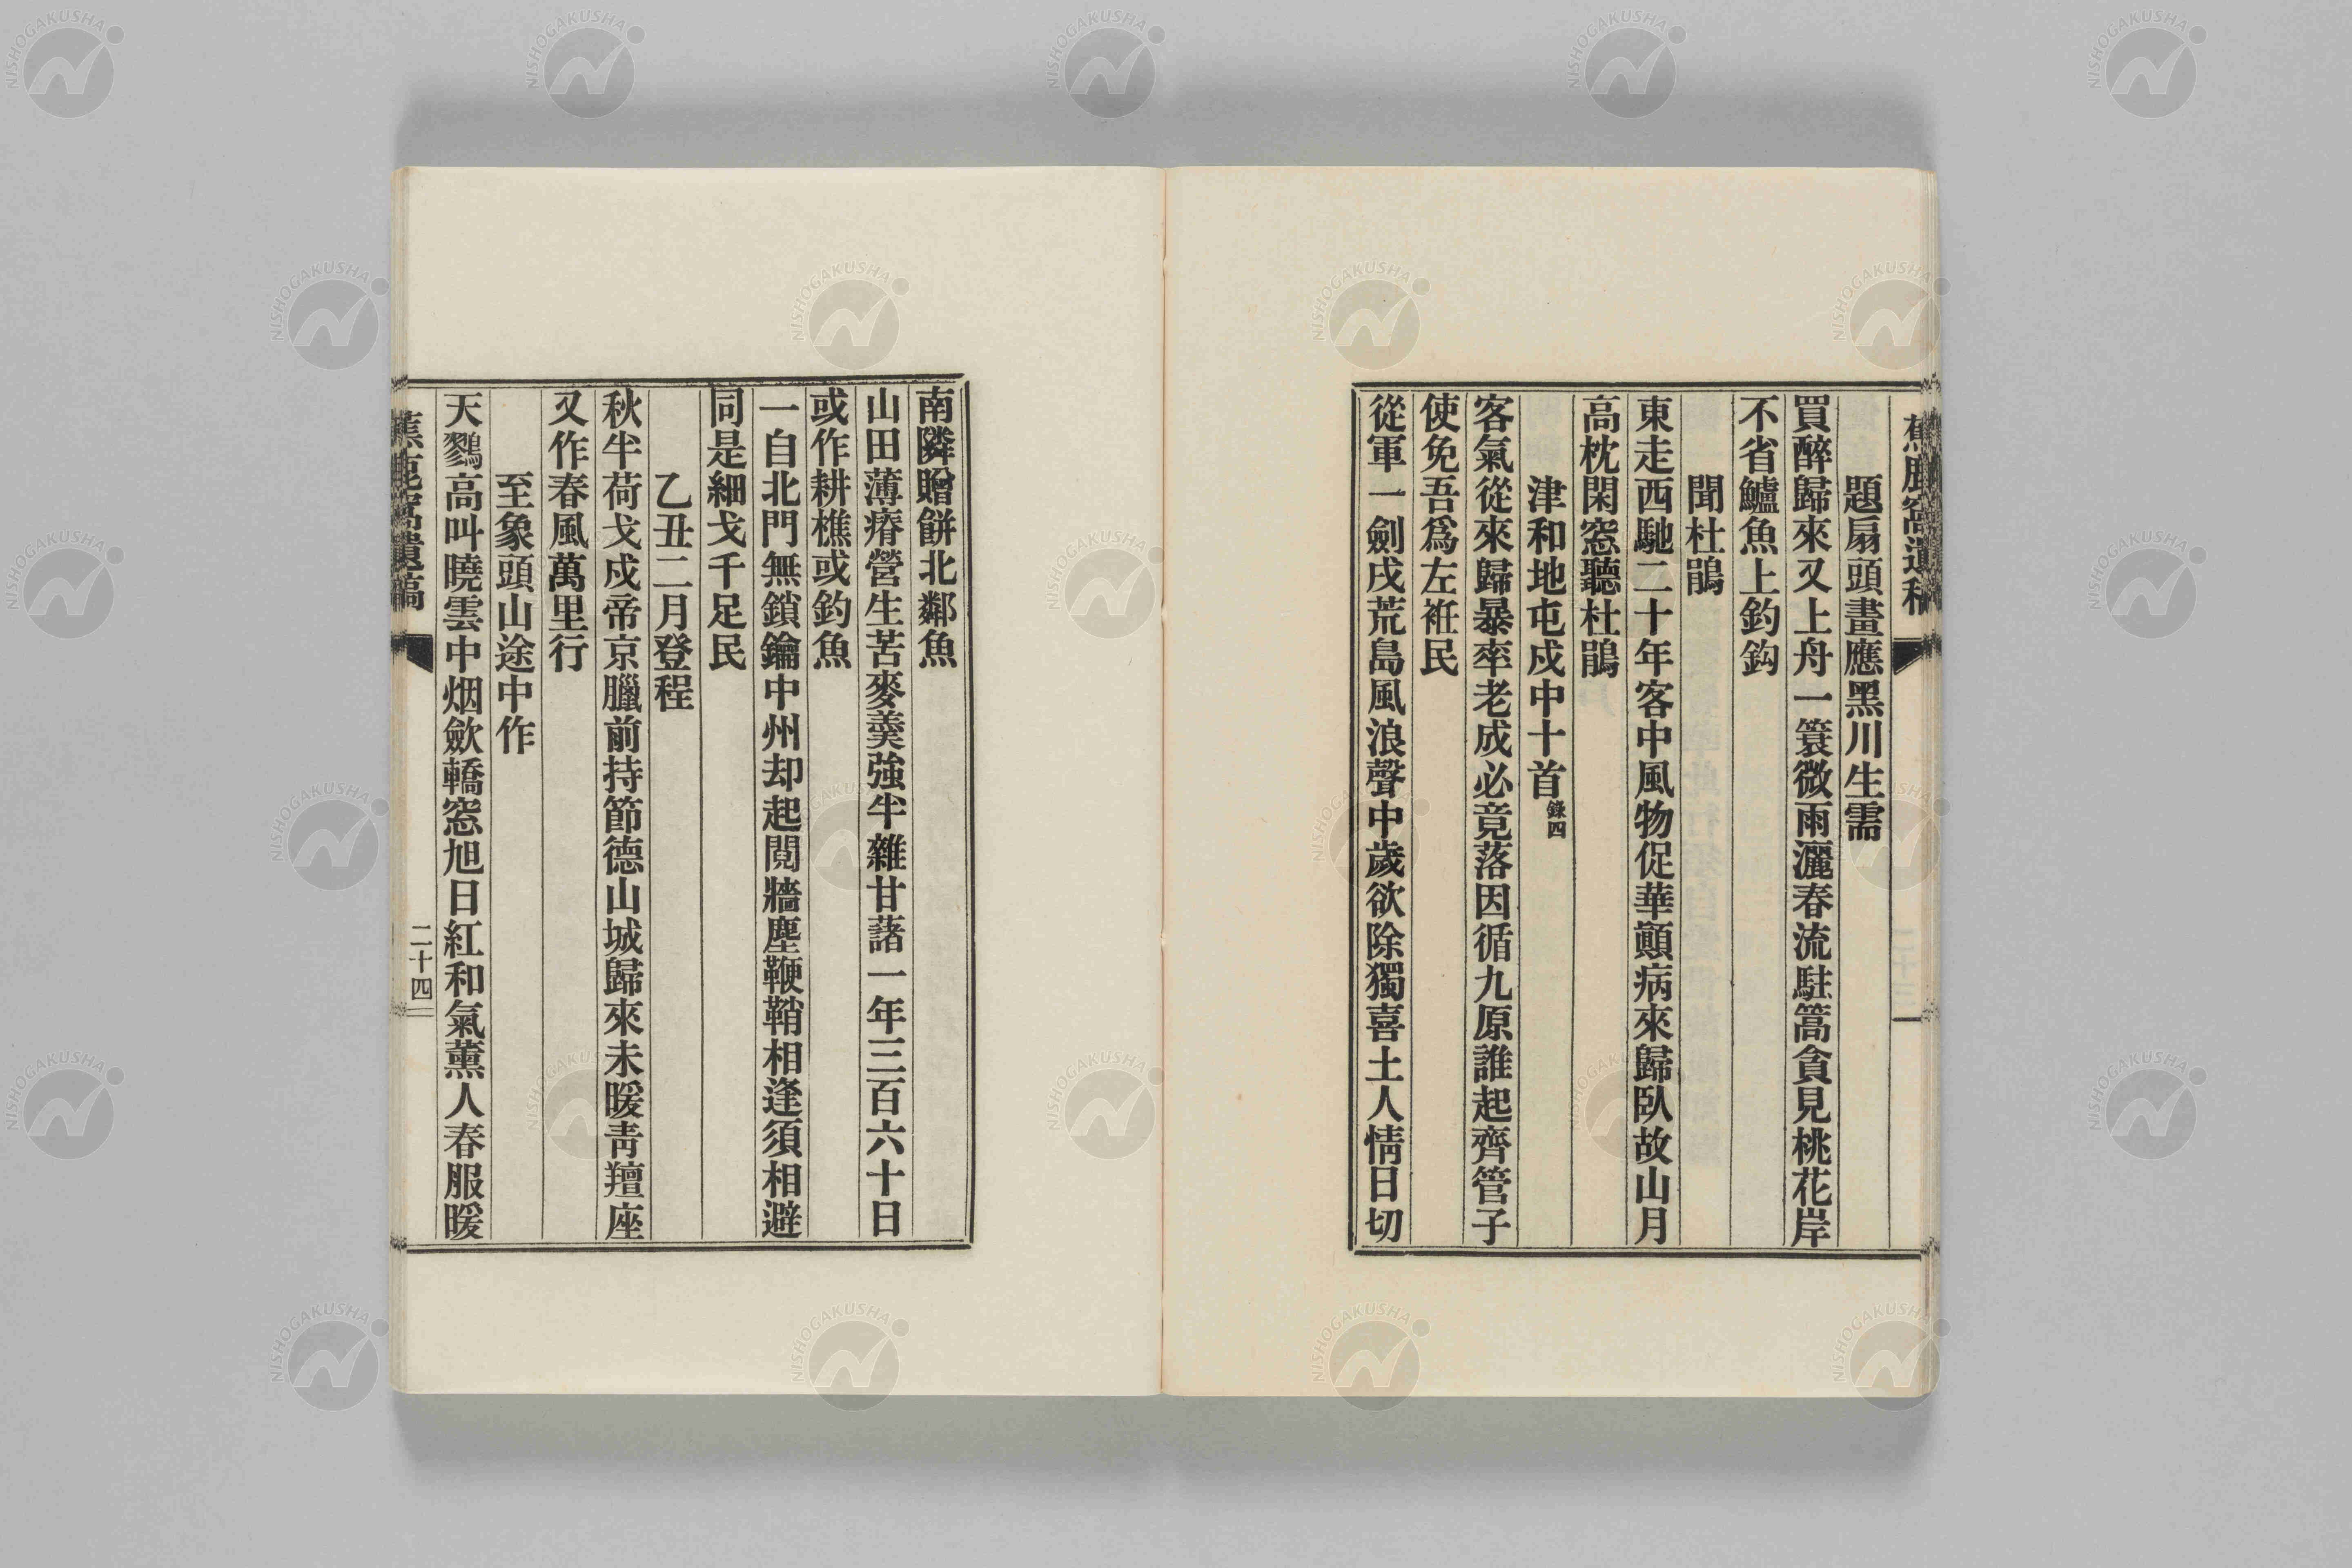 蕉鹿窩遺稿
二十三
題扇頭畫應黑川生需
買醉歸來又上舟一簑微雨灑春流駐篙貪見桃花岸
不省鱸魚上釣鈎
聞杜鵑
東走西馳二十年客中風物促華顚病來歸臥故山月
高枕閑窓聽杜鵑
津和地屯戍中十首錄四
客氣從來歸暴率老成必竟落因循九原誰起齊管子
使免吾爲左衽民
從軍一劍戍荒島風浪聲中歲欲除獨喜土人情日切
南隣贈餅北鄰魚
山田薄瘠營生苦麥羹強半雜甘藷一年三百六十日
或作耕樵或釣魚
一自北門無鎖鑰中州却起鬩牆塵鞭鞘相逢須相避
同是細戈千足民
乙丑二月登程
秋半荷戈戍帝京臘前持節德山城歸來未暖靑氊座
又作春風萬里行
至象頭山途中作
天鷚高叫曉雲中烟歛轎窓旭日紅和氣薰人春服暖
蕉鹿窩遺稿
二十四
NISHOGAKUSHA